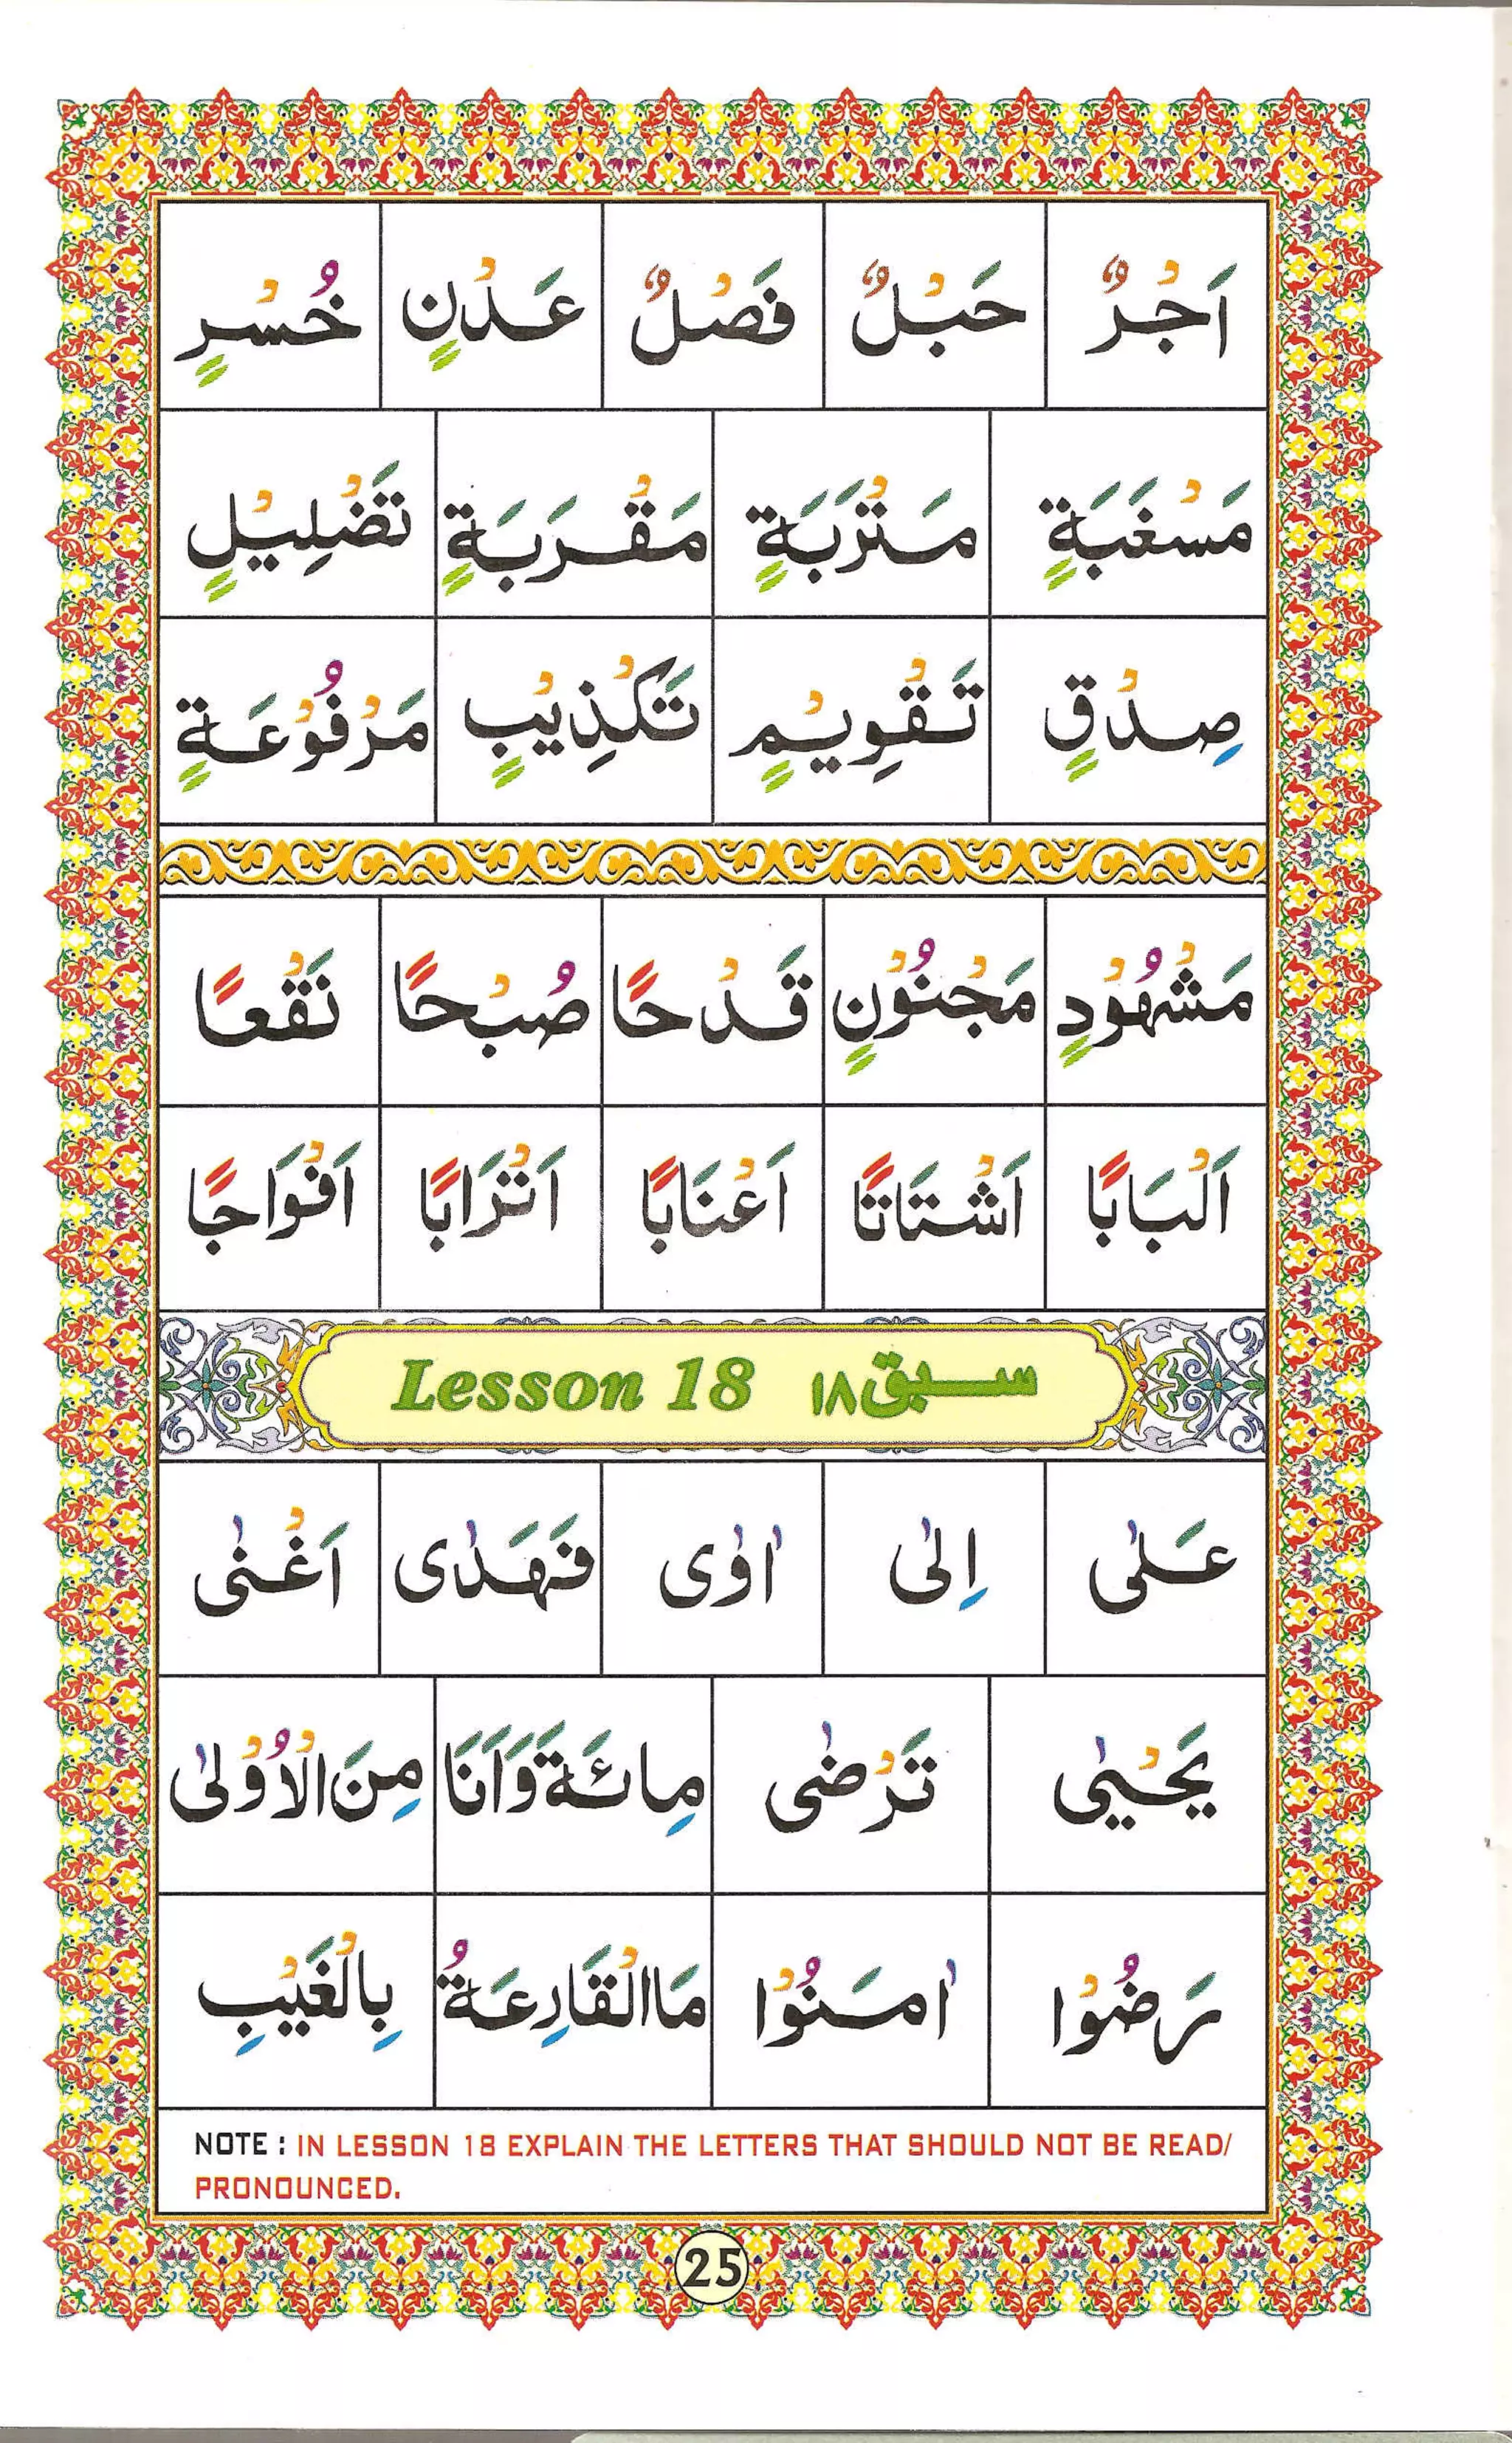 اَجْرٌ حَبْلٌ فَصْلٌ عَدْنٍ خُسْرٍ
مَسْغَبَةٍ مَتْرَبَةٍ مَقْرَبَةٍ تَضْلِيْلٍ
صِدْقٍ تَقْوِيْمٍ تَكْذِيْبٍ مَرْفُوْعَةٍ
مَشْهُوْدٍ مَجْنُوْنٍ قَدْحًا صُبْحًا نَقْعًا
اَلْبَابًا اَشْتَاتًا اَعْنَابًا اَتْرَابًا اَفْوَاجًا
Lesson 18 سبق ١٨
عَلٰى اِلٰى اٰوٰى فَهَدٰى اَغْنٰى
يَحْيٰى تَرْضٰى مِائَةَ وَاَنَا مِنَ الْاُوْلٰى
رَضُوْا اٰمَنُوْا مَا الْقَارِعَةُ بِالْغَيْبِ
NOTE : IN LESSON 18 EXPLAIN THE LETTERS THAT SHOULD NOT BE READ/
PRONOUNCED.
25